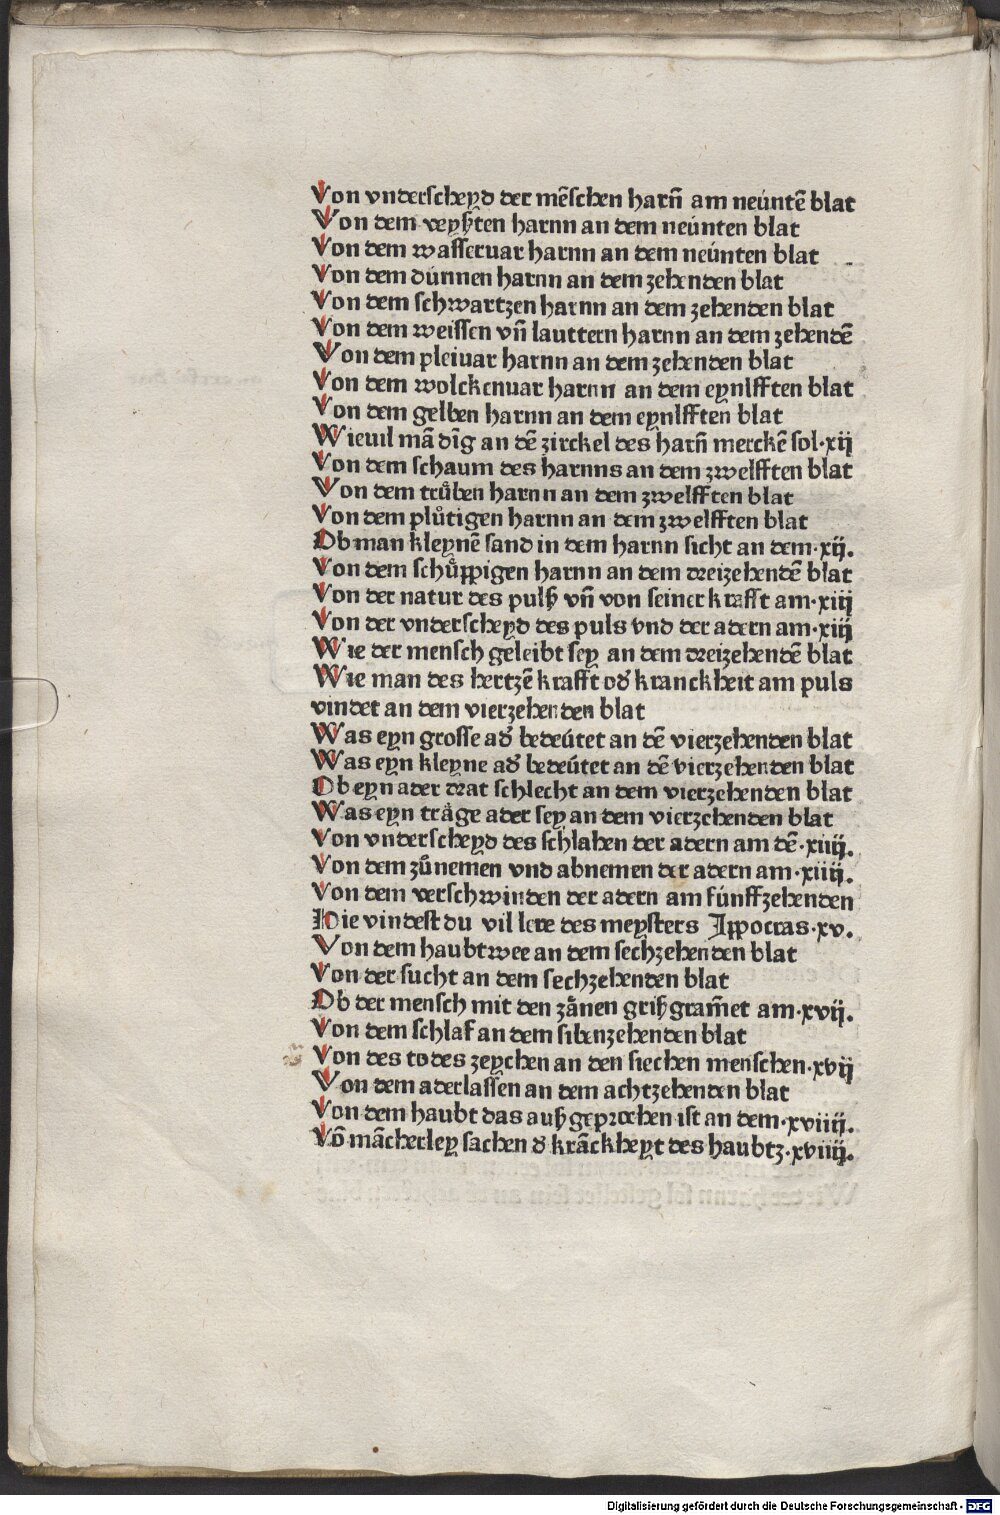 Von vnderscheyd der mēschen harn̄ am neúntē blat
Von dem veyßten harnn an dem neúnten blat
Von dem wasservar harnn an dem neúnten blat
Von dem dúnnen harnn an dem zehenden blat
Von dem schwartzen harnn an dem zehenden blat
Von dem weissen vn̄ lauttern harnn an dem zehendē
Von dem pleivar harnn an dem zehenden blat
Von dem wolckenuar harnn an dem eynlfften blat
Von dem gelben harnn an dem eynlfften blat
Wieuil mā dīg an dē zirckel des harn̄ merckē sol·xij
Von dem schaum des harnns an dem zwelfften blat
Von dem truͤben harnn an dem zwelfften blat
Von dem pluͦtigen harnn an dem zwelfften blat
Ob man kleynē sand in dem harnn sicht an dem·xij.
Von dem schuͤppigen harnn an dem dreizehendē blat
Von der natur des pulß vn̄ von seiner krafft am·xiij
Von der vnderscheyd des puls vnd der adern am·xiij
Wie der mensch geleibt sey an dem dreizehendē blat
Wie man des hertzē krafft od᷑ kranckheit am puls
vindet an dem vierzehenden blat
Was eyn grosse ad᷑ bedeútet an dē vierzehenden blat
Was eyn kleyne ad᷑ bedeútet an dē vierzehenden blat
Ob eyn ader drat schlecht an dem vierzehenden blat
Was eyn traͤge ader sey an dem vierzehenden blat
Von vnderscheyd des schlahen der adern am dē·xiiij.
Von dem zuͦnemen vnd abnemen der adern am·xiiij.
Von dem verschwinden der adern am fúnffzehenden
Hie vindest du vil lere des meysters Ippocras·xv.
Von dem haubtwee an dem sechzehenden blat
Von der sucht an dem sechzehenden blat
Ob der mensch mit den zaͤnen grißgram̄et am·xvij.
Von dem schlaf an dem sibenzehenden blat
Von des todes zeychen an den siechen menschen·xvij
Von dem aderlassen an dem achtzehenden blat
Von dem haubt das auß geprochen ist an dem·xviiij.
Vō mācherley sachen d᷑ krāckheyt des haubtz·xviiij.
Digitalisierung gefördert durch die Deutsche Forschungsgemeinschaft - DFG